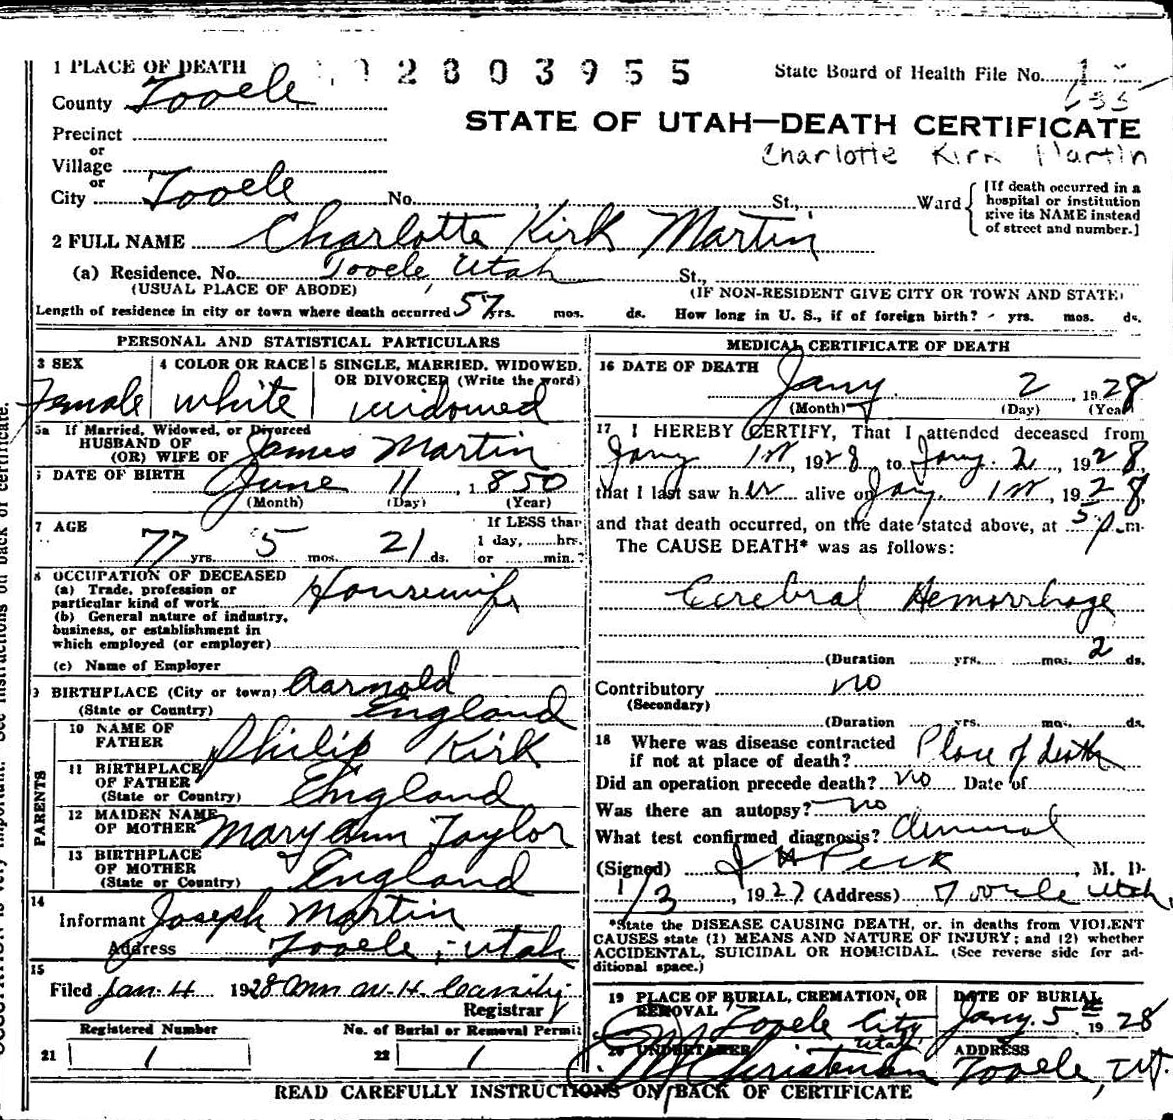 1 PLACE OF DEATH 2803955 State Board of Health File No. 1
County Tooele
STATE OF UTAH—DEATH CERTIFICATE
Precinct
or
Charlotte Kirk Martin
Village
or
City Tooele No. St., Ward
[If death occurred in a
hospital or institution
give its NAME instead
of street and number.]
2 FULL NAME Charlotte Kirk Martin
(a) Residence. No. Tooele, Utah St.,
(USUAL PLACE OF ABODE) (IF NON-RESIDENT GIVE CITY OR TOWN AND STATE)
Length of residence in city or town where death occurred 57 yrs. mos. ds. How long in U. S., if of foreign birth? - yrs. mos. ds.
PERSONAL AND STATISTICAL PARTICULARS
3 SEX 4 COLOR OR RACE 5 SINGLE, MARRIED, WIDOWED.
OR DIVORCED (Write the word)
Female white widowed
5a If Married, Widowed, or Divorced
HUSBAND OF
(OR) WIFE OF James Martin
DATE OF BIRTH June 11, 1850
(Month) (Day) (Year)
7 AGE If LESS than
77 yrs. 5 mos. 21 ds. 1 day, hrs.
or min.?
8 OCCUPATION OF DECEASED
(a) Trade, profession or
particular kind of work Housewife
(b) General nature of industry,
business, or establishment in
which employed (or employer)
(c) Name of Employer
9 BIRTHPLACE (City or town) Aarnold
(State or Country) England
PARENTS
10 NAME OF
FATHER Philip Kirk
11 BIRTHPLACE
OF FATHER
(State or Country) England
12 MAIDEN NAME
OF MOTHER Mary Ann Taylor
13 BIRTHPLACE
OF MOTHER
(State or Country) England
14
Informant Joseph Martin
Address Tooele, Utah
15
Filed Jan. 4 1928
Registrar
Registered Number No. of Burial or Removal Permit
21 1 22 1
MEDICAL CERTIFICATE OF DEATH
16 DATE OF DEATH
Jany 2, 1928
(Month) (Day) (Year)
17 I HEREBY CERTIFY, That I attended deceased from
Jany 1st, 1928, to Jany. 2, 1928,
that I last saw her alive on Jany. 1st, 1928,
and that death occurred, on the date stated above, at 5 p.m.
The CAUSE DEATH* was as follows:
Cerebral Hemorrhage
(Duration yrs. mos. 2 ds.
Contributory no
(Secondary)
(Duration yrs. mos. ds.
18 Where was disease contracted
if not at place of death? Place of death
Did an operation precede death? no Date of
Was there an autopsy? no
What test confirmed diagnosis?
(Signed) J H Peck, M. D.
1/3, 1927 (Address) Tooele Utah,
*State the DISEASE CAUSING DEATH, or. in deaths from VIOLENT
CAUSES state (1) MEANS AND NATURE OF INJURY; and (2) whether
ACCIDENTAL, SUICIDAL OR HOMICIDAL. (See reverse side for ad-
ditional space.)
19 PLACE OF BURIAL, CREMATION, OR DATE OF BURIAL
REMOVAL Tooele City Jany. 5th 1928
Utah
20 UNDERTAKER ADDRESS
Tooele, Ut.
READ CAREFULLY INSTRUCTIONS ON BACK OF CERTIFICATE